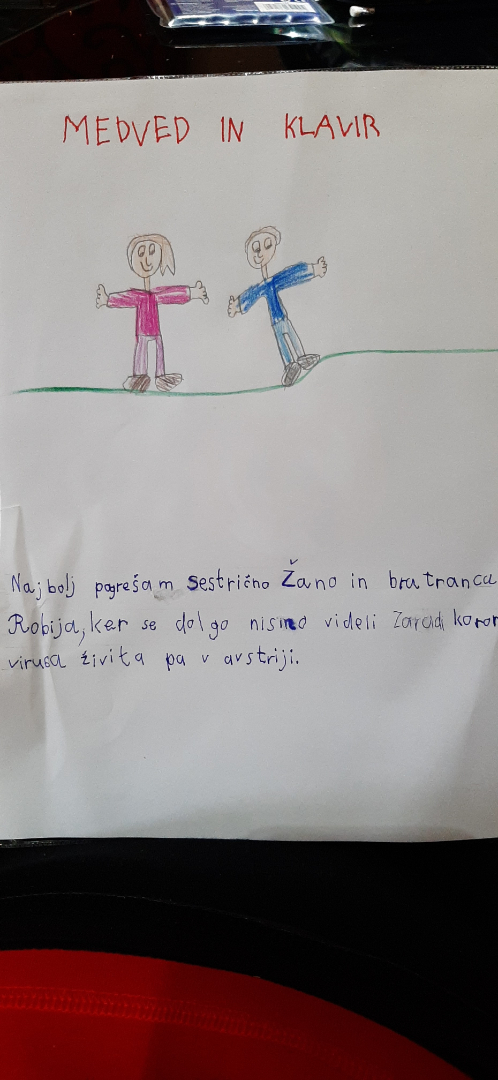 MEDVED IN KLAVIR
Najbolj pogrešam sestrično Žano in bratranca
Robija, ker se dolgo nismo videli zaradi koron
virusa živita pa v avstriji.